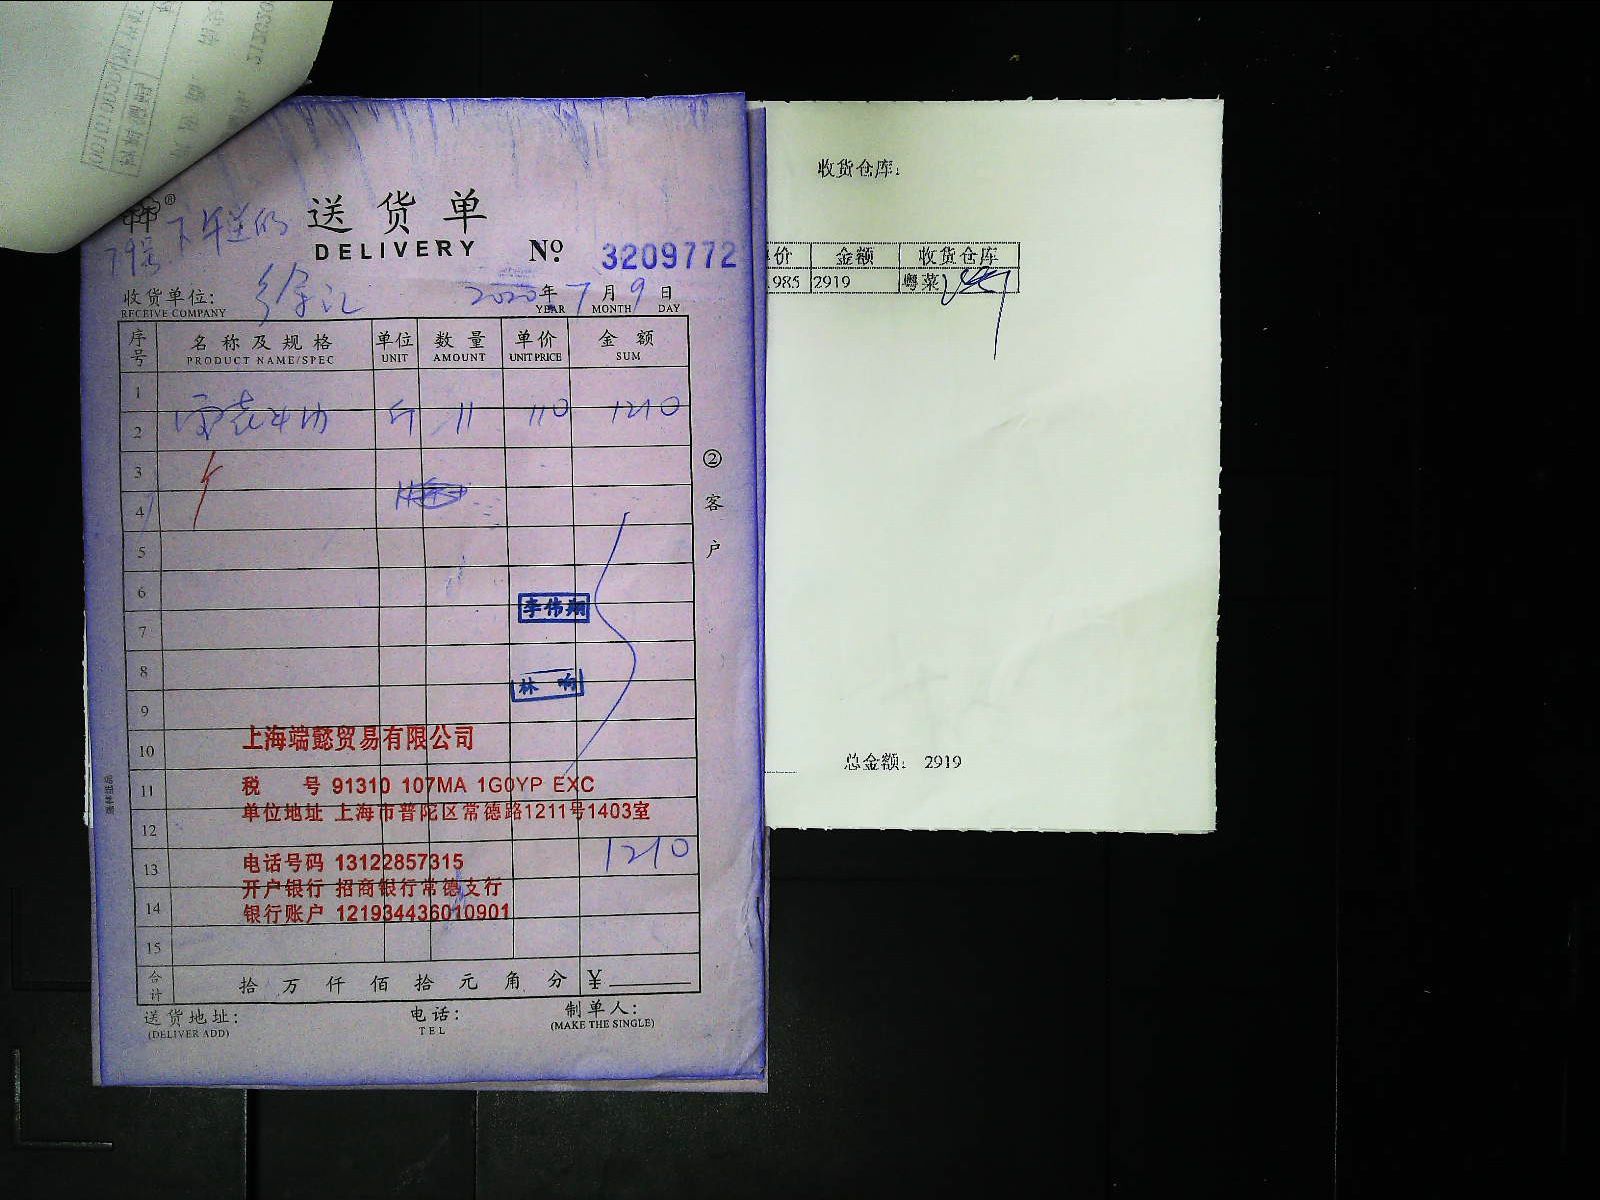 送货单
DELIVERY
№ 3209772
79号 下午送的
收货单位: 徐汇 2020年 7月 9日
RECEIVE COMPANY YEAR MONTH DAY
序号 名称及规格 单位 数量 单价 金额
PRODUCT NAME/SPEC UNIT AMOUNT UNIT PRICE SUM
1
斤 11 110 1210
2
3
4
5
6
李伟翔
7
8
林响
9
上海端懿贸易有限公司
10
11 税 号 91310 107MA 1G0YP EXC
单位地址 上海市普陀区常德路1211号1403室
12
13 电话号码 13122857315 1210
开户银行 招商银行常德支行
14 银行账户 121934436010901
15
合计 拾 万 仟 佰 拾 元 角 分 ¥
送货地址: 电话: 制单人:
(DELIVER ADD) TEL (MAKE THE SINGLE)
② 客户
收货仓库:
价 金额 收货仓库
985 2919 粤菜
总金额: 2919